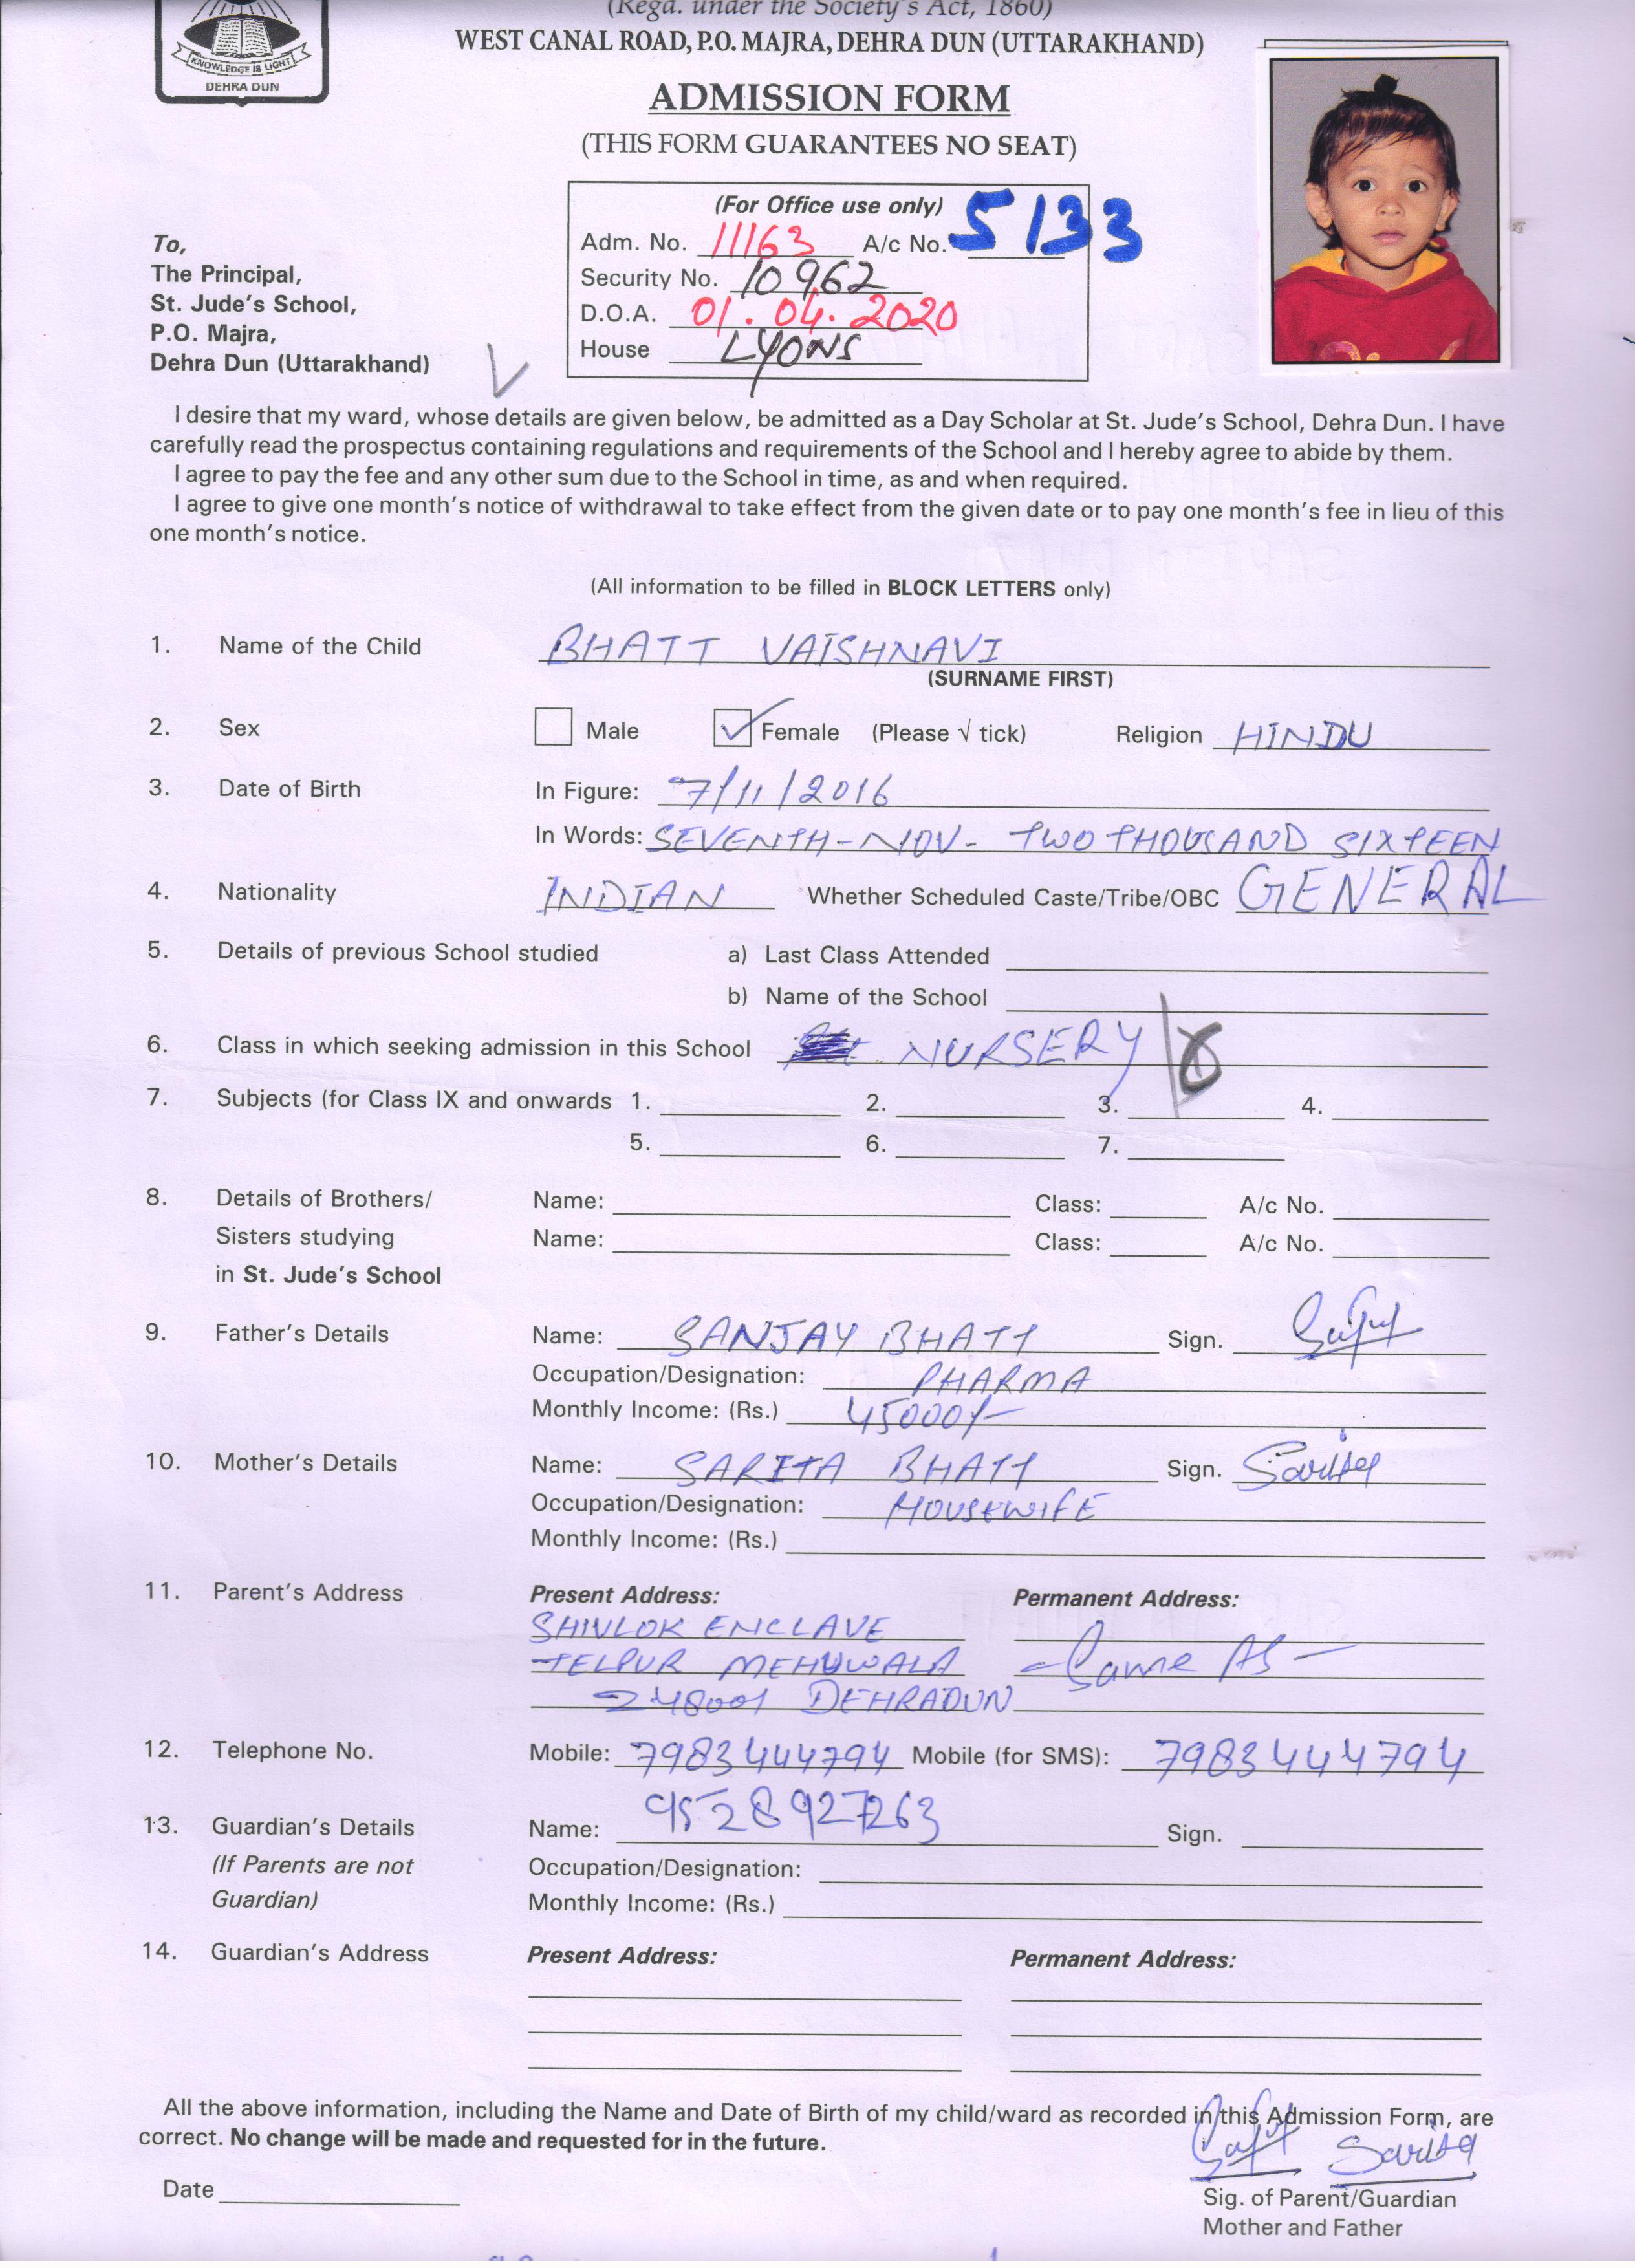 (Regd. under the Society's Act, 1860)
WEST CANAL ROAD, P.O. MAJRA, DEHRA DUN (UTTARAKHAND)
KNOWLEDGE IS LIGHT
DEHRA DUN
ADMISSION FORM
(THIS FORM GUARANTEES NO SEAT)
(For Office use only)
Adm. No. 11163 A/c No. 5133
Security No. 10962
D.O.A. 01.04.2020
House LYONS
To,
The Principal,
St. Jude's School,
P.O. Majra,
Dehra Dun (Uttarakhand)
I desire that my ward, whose details are given below, be admitted as a Day Scholar at St. Jude's School, Dehra Dun. I have
carefully read the prospectus containing regulations and requirements of the School and I hereby agree to abide by them.
I agree to pay the fee and any other sum due to the School in time, as and when required.
I agree to give one month's notice of withdrawal to take effect from the given date or to pay one month's fee in lieu of this
one month's notice.
(All information to be filled in BLOCK LETTERS only)
1. Name of the Child BHATT VAISHNAVI
(SURNAME FIRST)
2. Sex Male Female (Please √ tick) Religion HINDU
3. Date of Birth In Figure: 7/11/2016
In Words: SEVENTH-NOV- TWO THOUSAND SIXTEEN
4. Nationality INDIAN Whether Scheduled Caste/Tribe/OBC GENERAL
5. Details of previous School studied a) Last Class Attended
b) Name of the School
6. Class in which seeking admission in this School NURSERY
7. Subjects (for Class IX and onwards 1. 2. 3. 4.
5. 6. 7.
8. Details of Brothers/ Name: Class: A/c No.
Sisters studying Name: Class: A/c No.
in St. Jude's School
9. Father's Details Name: SANJAY BHATT Sign.
Occupation/Designation: PHARMA
Monthly Income: (Rs.) 45000/-
10. Mother's Details Name: SARITA BHATT Sign. Sarita
Occupation/Designation: HOUSEWIFE
Monthly Income: (Rs.)
11. Parent's Address Present Address: Permanent Address:
SHIVLOK ENCLAVE
TELPUR MEHUWALA - Same As -
248001 DEHRADUN
12. Telephone No. Mobile: 7983444794 Mobile (for SMS): 7983444794
9528927263
13. Guardian's Details Name: Sign.
(If Parents are not Occupation/Designation:
Guardian) Monthly Income: (Rs.)
14. Guardian's Address Present Address: Permanent Address:
All the above information, including the Name and Date of Birth of my child/ward as recorded in this Admission Form, are
correct. No change will be made and requested for in the future.
Sarita
Date
Sig. of Parent/Guardian
Mother and Father